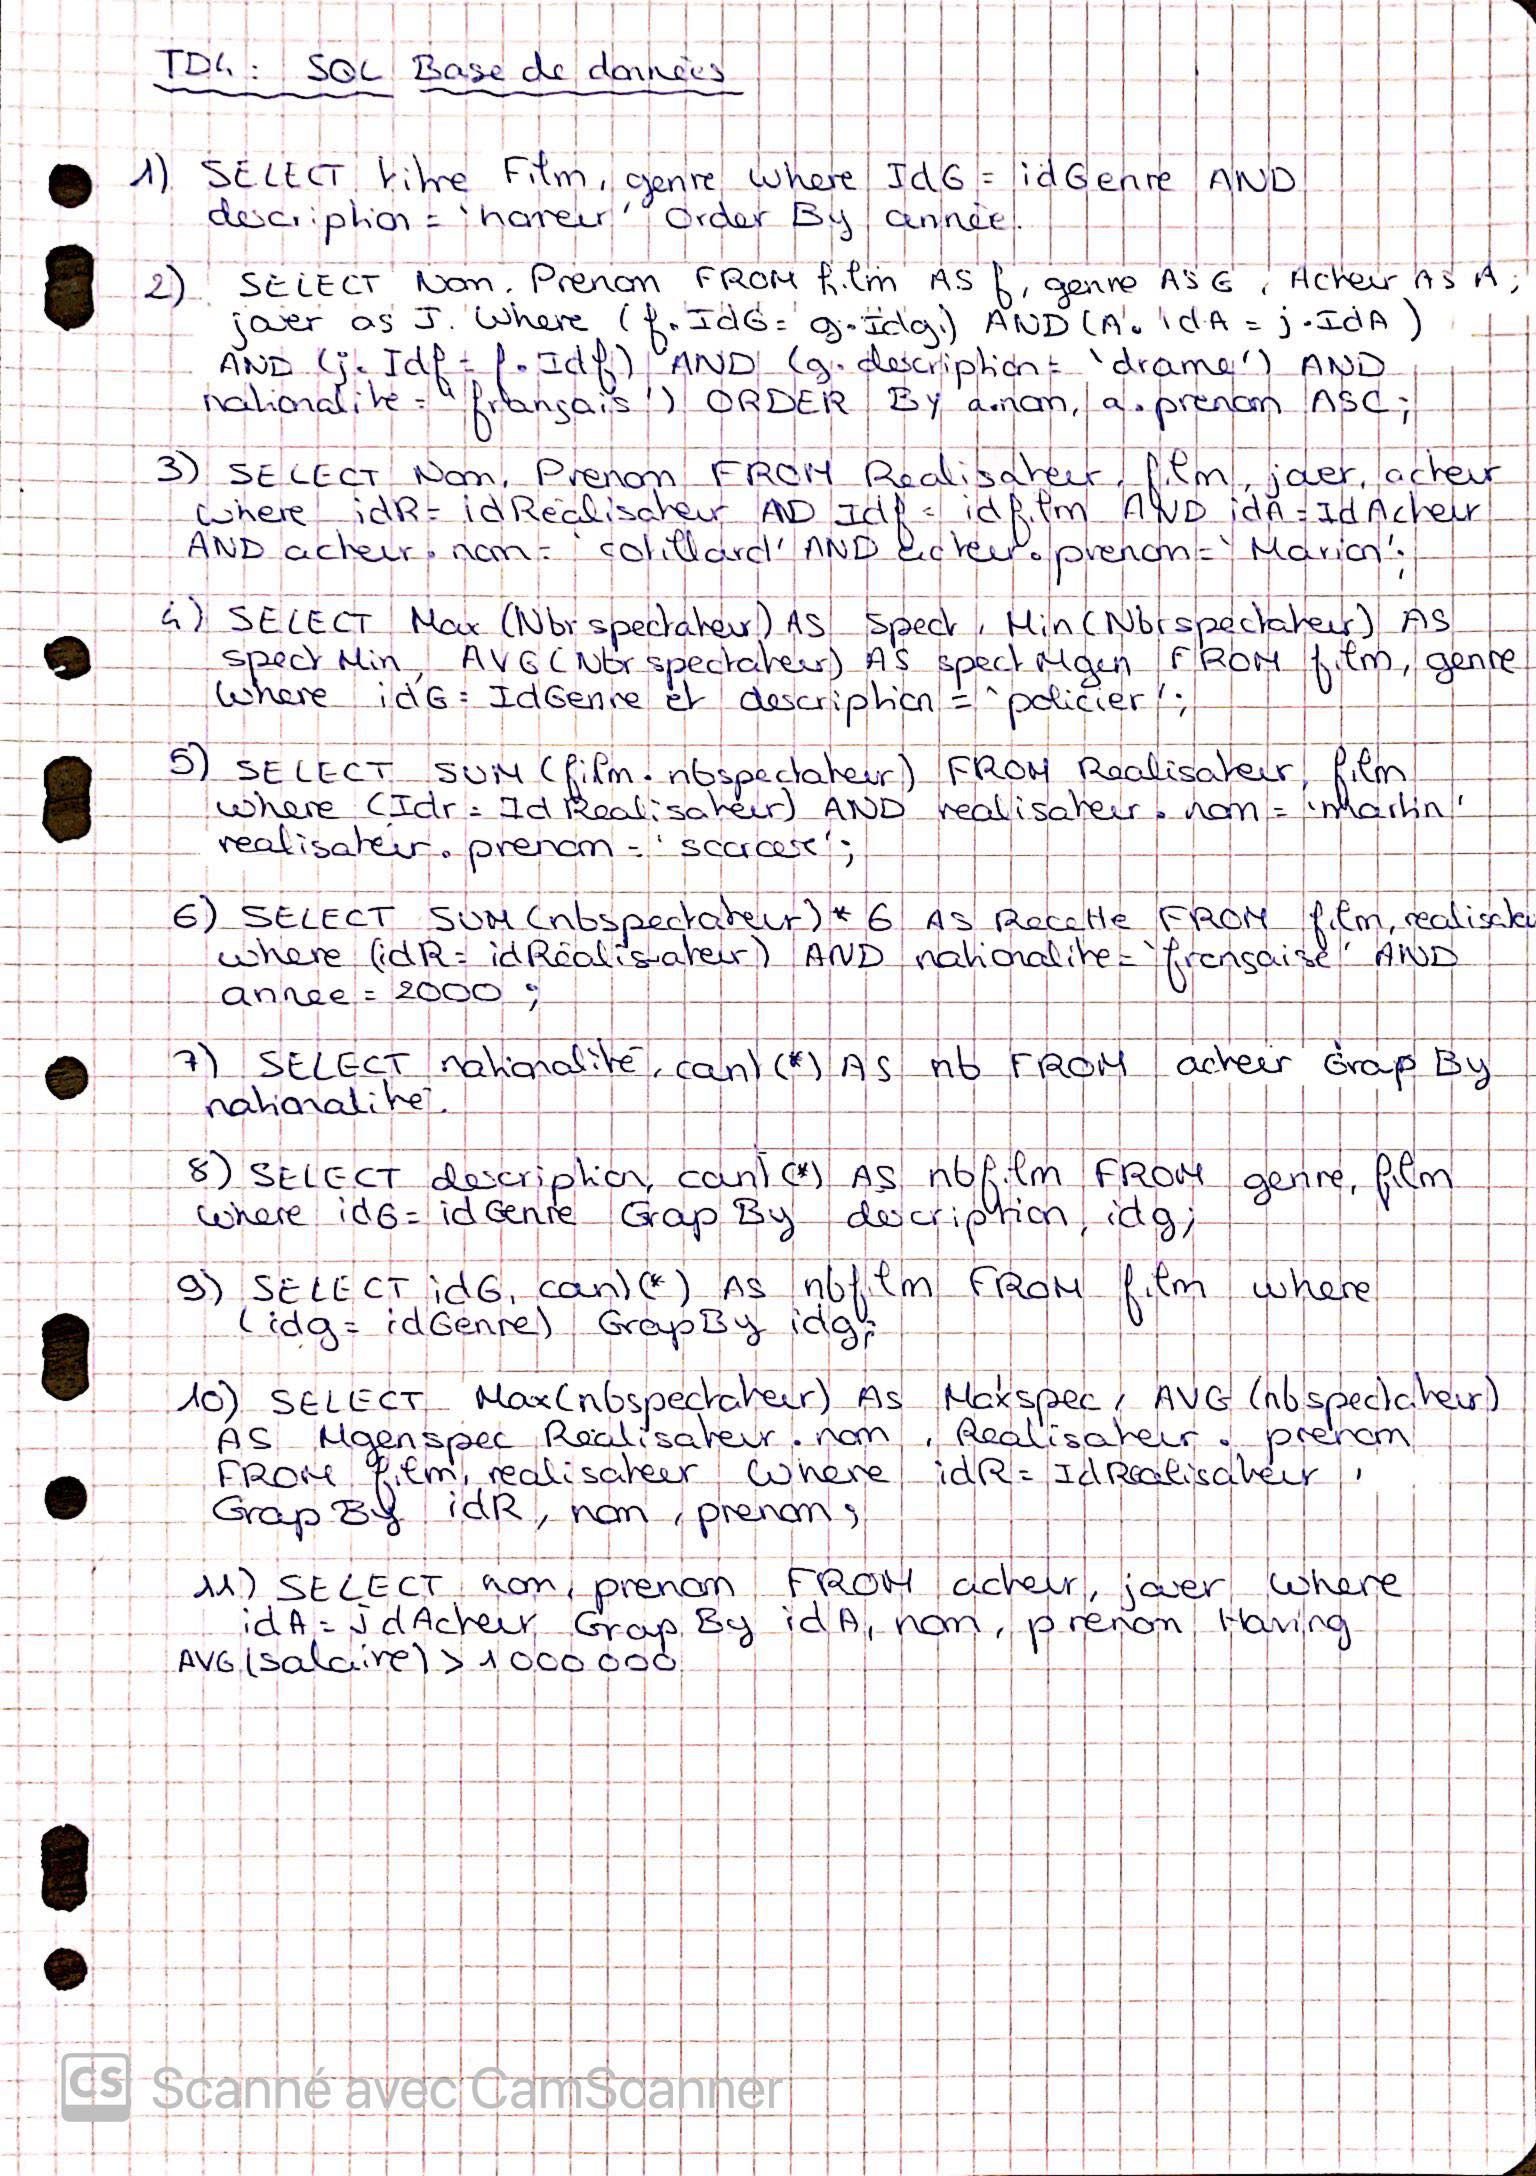 TD4 : SQL Base de données
1) SELECT titre Film, genre where IdG = idGenre AND
description = 'horreur' Order By année.
2) SELECT Nom, Prenom FROM film AS f, genre AS G, Acteur AS A,
jouer as J. Where (f.IdG = g.Idg.) AND (A.idA = j.IdA)
AND (j.Idf = f.Idf) AND (g.description = 'drame') AND
nationalité = "français') ORDER By a.nom, a.prenom ASC;
3) SELECT Nom, Prenom FROM Realisateur, film, jouer, acteur
where idR = idRéalisateur AD Idf = idfilm AND idA = IdActeur
AND acteur.nom = 'cotillard' AND acteur.prenom = 'Marion';
4) SELECT Max (Nbr spectateur) AS Spect, Min (Nbr spectateur) AS
spect Min, AVG (Nbr spectateur) AS spect Moyen FROM film, genre
Where idG = IdGenre et description = 'policier';
5) SELECT SUM (film.nbspectateur) FROM Realisateur, film
where (Idr = Id Realisateur) AND realisateur.nom = 'Martin'
realisateur.prenom = ;
6) SELECT SUM (nbspectateur) * 6 AS Recette FROM film, realisateu
where (idR = idRéalisateur) AND nationalite = 'française' AND
annee = 2000 ;
7) SELECT nationalité, count (*) AS nb FROM acteur Group By
nationalité.
8) SELECT description, count (*) AS nbfilm FROM genre, film
where idG = idGenre Group By description, idg;
9) SELECT idG, count (*) AS nbfilm FROM film where
(idg = idGenre) Group By idg;
10) SELECT Max (nbspectateur) AS Maxspec, AVG (nbspectateur)
AS Moyenspec Réalisateur.nom, Realisateur.prenom
FROM film, realisateur Where idR = IdRealisateur,
Group By idR, nom, prenom;
11) SELECT nom, prenom FROM acteur, jouer where
idA = IdActeur Group By idA, nom, prenom Having
AVG (salaire) > 1 000 000
CS Scanné avec CamScanner